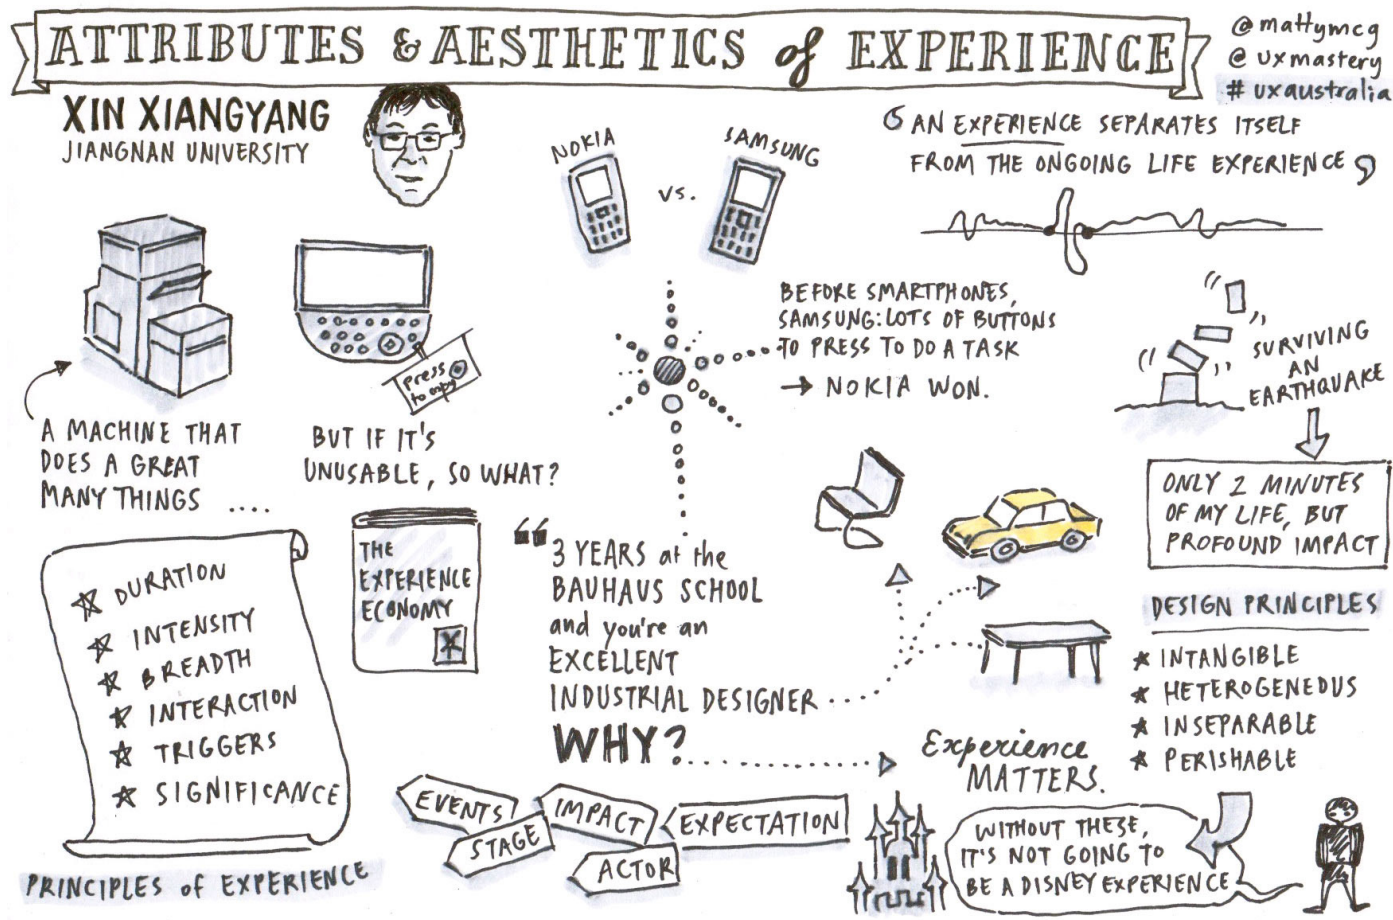 ATTRIBUTES & AESTHETICS of EXPERIENCE
@mattymcg
@uxmastery
#uxaustralia
XIN XIANGYANG
JIANGNAN UNIVERSITY
NOKIA
vs.
SAMSUNG
AN EXPERIENCE SEPARATES ITSELF
FROM THE ONGOING LIFE EXPERIENCE
A MACHINE THAT
DOES A GREAT
MANY THINGS ....
press
to enjoy
BUT IF IT'S
UNUSABLE, SO WHAT?
BEFORE SMARTPHONES,
SAMSUNG: LOTS OF BUTTONS
TO PRESS TO DO A TASK
→ NOKIA WON.
SURVIVING
AN
EARTHQUAKE
ONLY 2 MINUTES
OF MY LIFE, BUT
PROFOUND IMPACT
DURATION
INTENSITY
BREADTH
INTERACTION
TRIGGERS
SIGNIFICANCE
PRINCIPLES of EXPERIENCE
THE
EXPERIENCE
ECONOMY
“ 3 YEARS at the
BAUHAUS SCHOOL
and you're an
EXCELLENT
INDUSTRIAL DESIGNER
WHY?
DESIGN PRINCIPLES
INTANGIBLE
HETEROGENEOUS
INSEPARABLE
PERISHABLE
Experience
MATTERS.
EVENTS
STAGE
IMPACT
ACTOR
EXPECTATION
WITHOUT THESE,
IT'S NOT GOING TO
BE A DISNEY EXPERIENCE